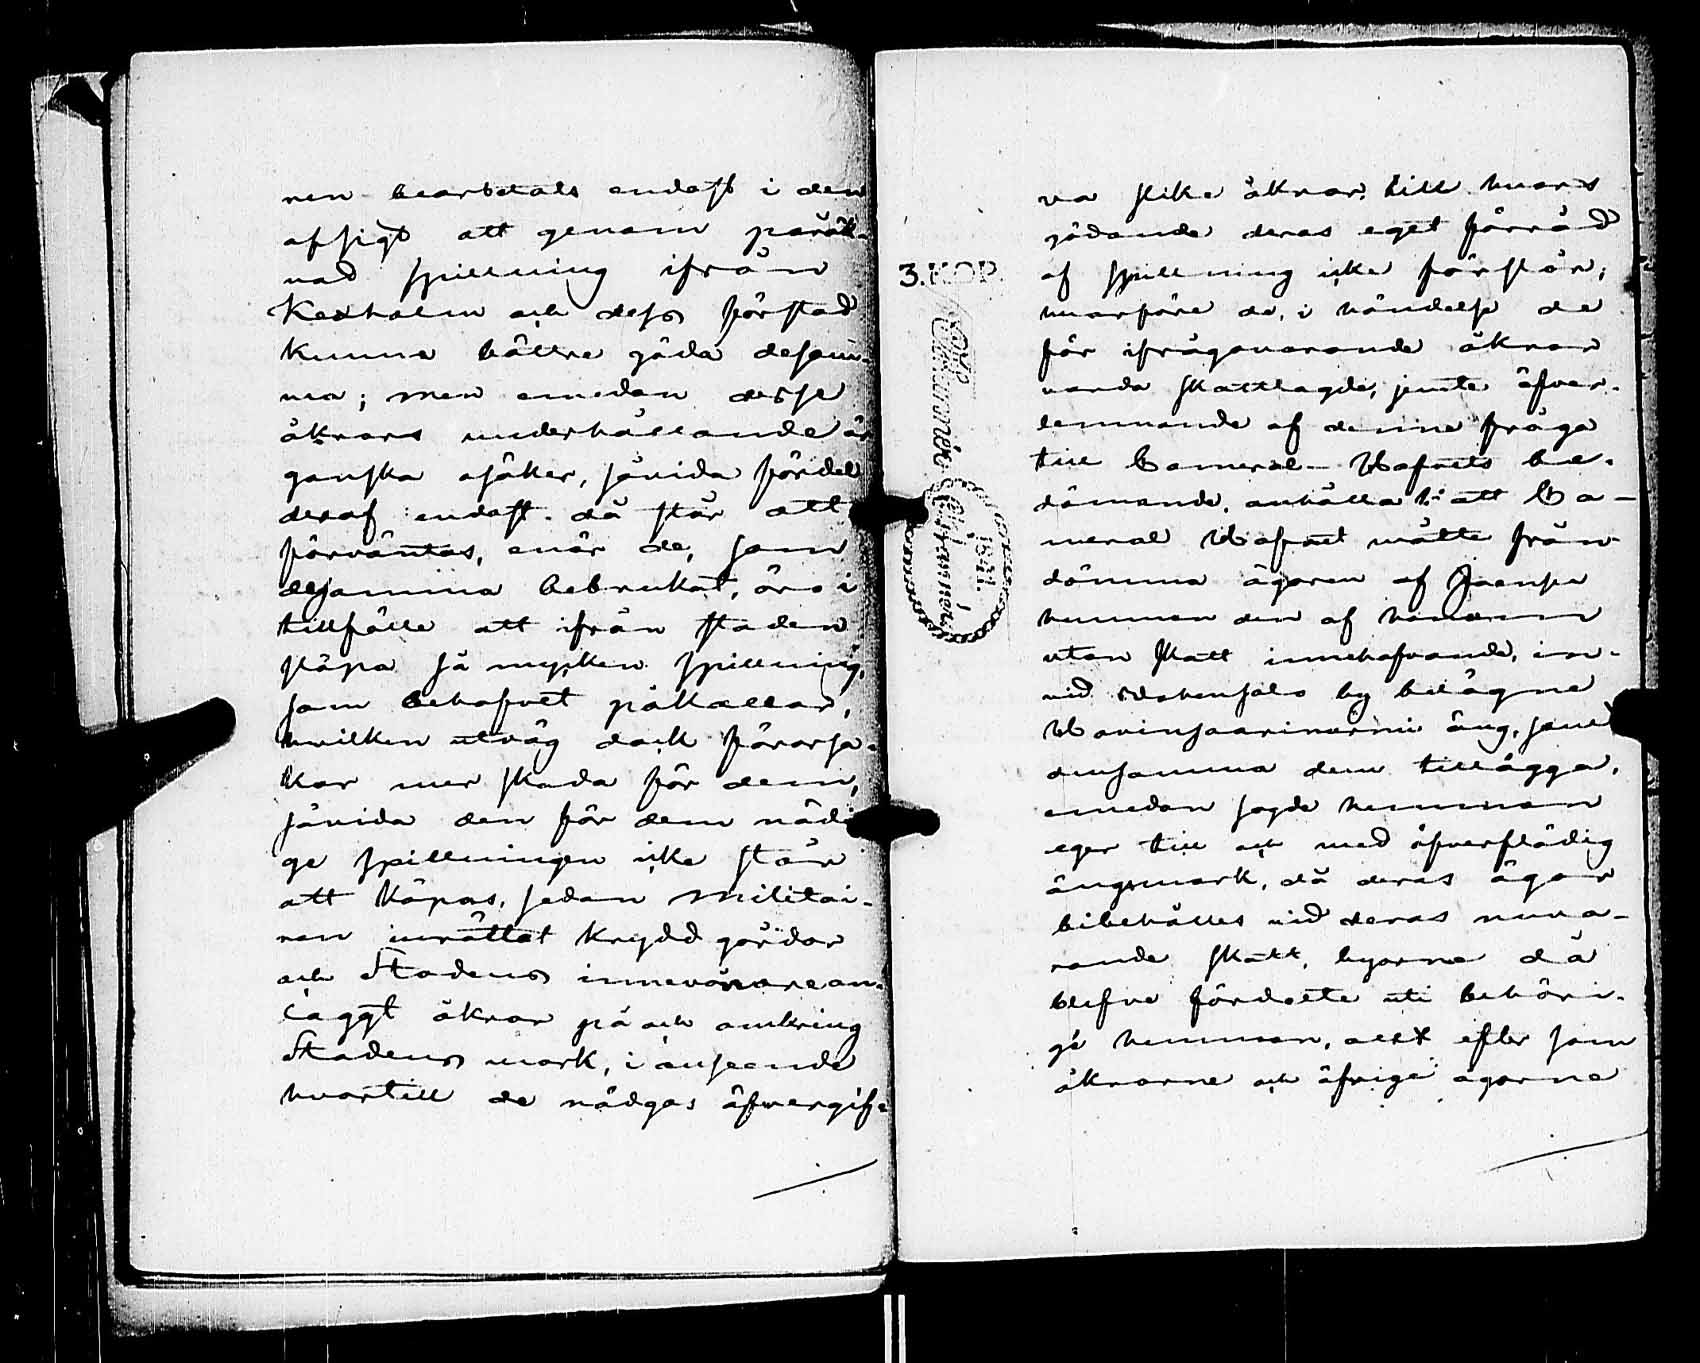 nen bearbetats endast i den
afsigt att genom paräk-
nad spillning ifrån
Kexholm och dess förstad
kunna bättre göda desam-
ma; men emedan desse
åkrars underhållande är
ganska osäker, såvida fördel
deraf endast då står att
förväntas, enär de, som
desamma bebrukat, äro i
tillfälle att ifrån staden
köpa så mycken spillning,
som behofvet påkallar,
hvilken utväg dock förorsa-
kar mer skada för dem,
såvida den för dem nödi
ge spillningen icke står
att köpas, sedan Militai-
ren inrättat kryddgårdar
och Stadens innevånare an-
laggt åkrar på och omkring
Stadens mark, i anseende
hvartill de nödgas öfvergif-
va slike åkrar, till hvars
gödande deras eget förråd
af spillning icke förslår;
hvarföre de, i händelse de
för ifrågavarande åkrar
varda skattlagde, jemte öfver-
lemnande af denne fråga
till Cameral-Hofvets be-
dömande, anhålla att Ca-
meral Hofvet måtte från-
dömma ägaren af
hemman den af honom
utan skatt innehafvande, in-
vid by belägne
äng, samt
densamma dem tillägga,
emedan sagde hemman
eger till och med öfverflödig
ängsmark, då deras ägor
bibehålles vid deras nuva-
rande skatt, byarne då
blifva fördelte uti behöri-
ga hemman, allt efter som
åkrarne och öfrige ägorne
3. KOP.